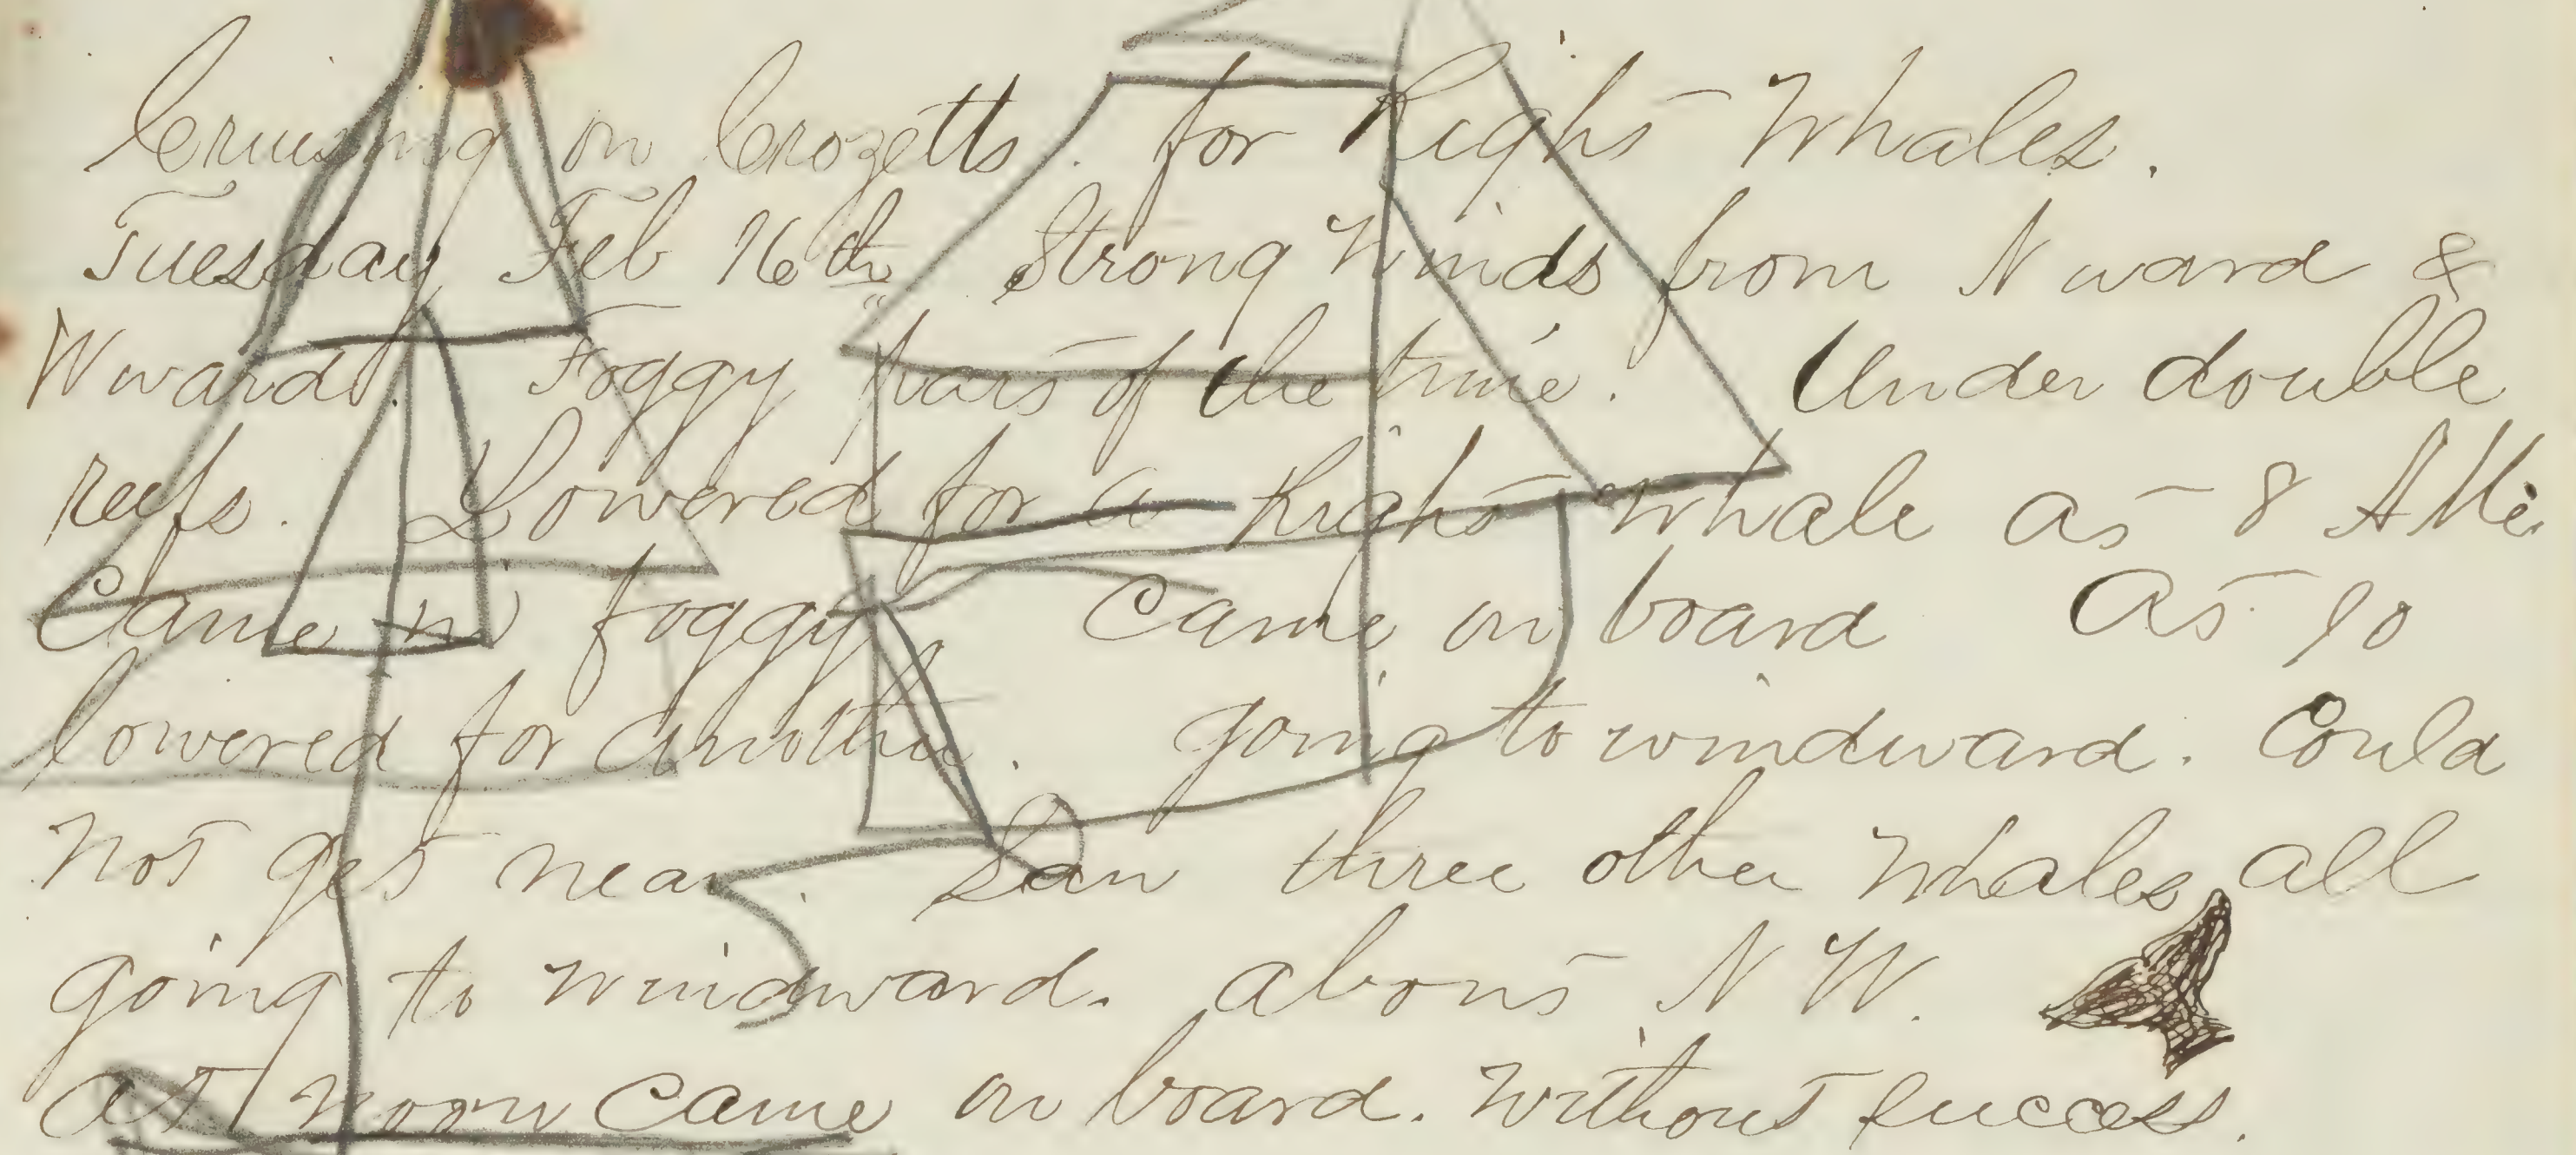 Cruising on Crozetts. for Right Whales.
Tuesday Feb 16th Strong Winds from N ward &
W ward. Foggy part of the time. Under double
reefs. Lowered for a Right Whale at 8 AM.
Came in foggy Came on board At 10
lowered for another. going to windward. Could
not get near. Saw three other Whales all
going to windward. about N W.
at noon Came on board. Without success.